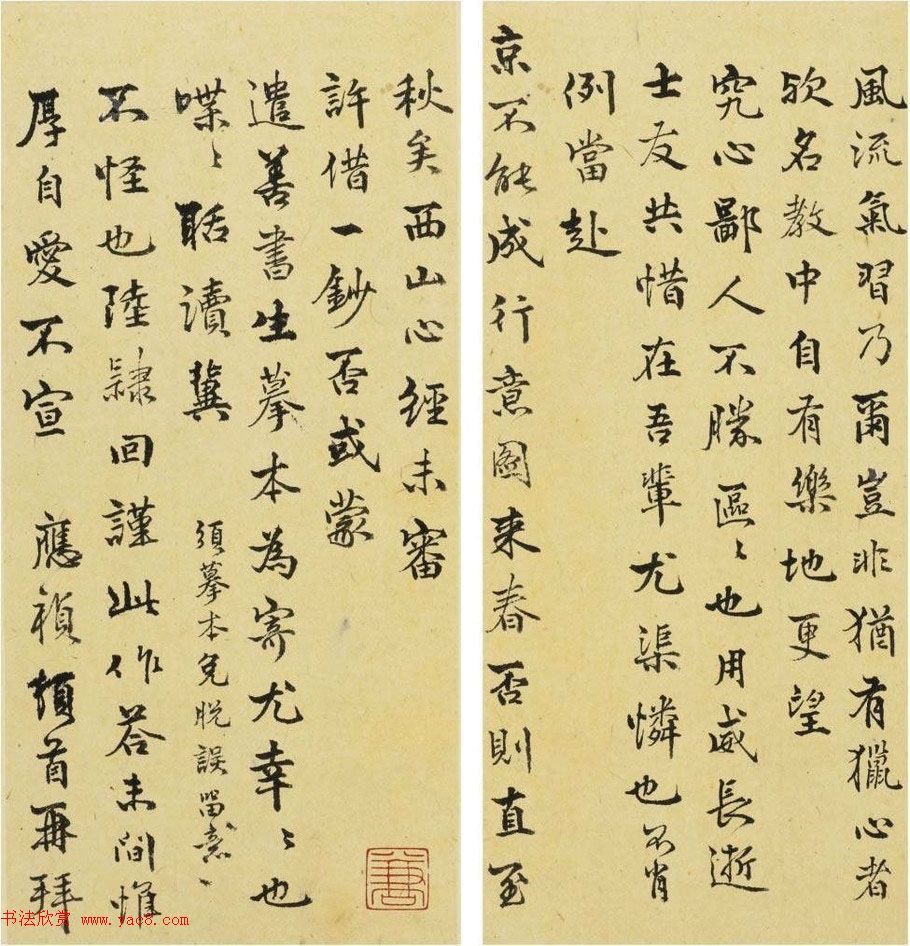 風流氣習乃爾豈非猶有獵心者
歟名教中自有樂地更望
究心鄙人不勝區〻也用威長逝
士友共惜在吾輩尤渠憐也不肖
例當赴
京不能成行意圖来春否則直至
秋矣西山心經未審
許借一鈔否或蒙
遣善書生摹本為寄尤幸〻也
喋〻聒讀冀
須摹本免脱誤留意〻
不怪也陸隸回謹此作答未間惟
厚自愛不宣 應禎頓首再拜
书法欣赏 www.yac8.com